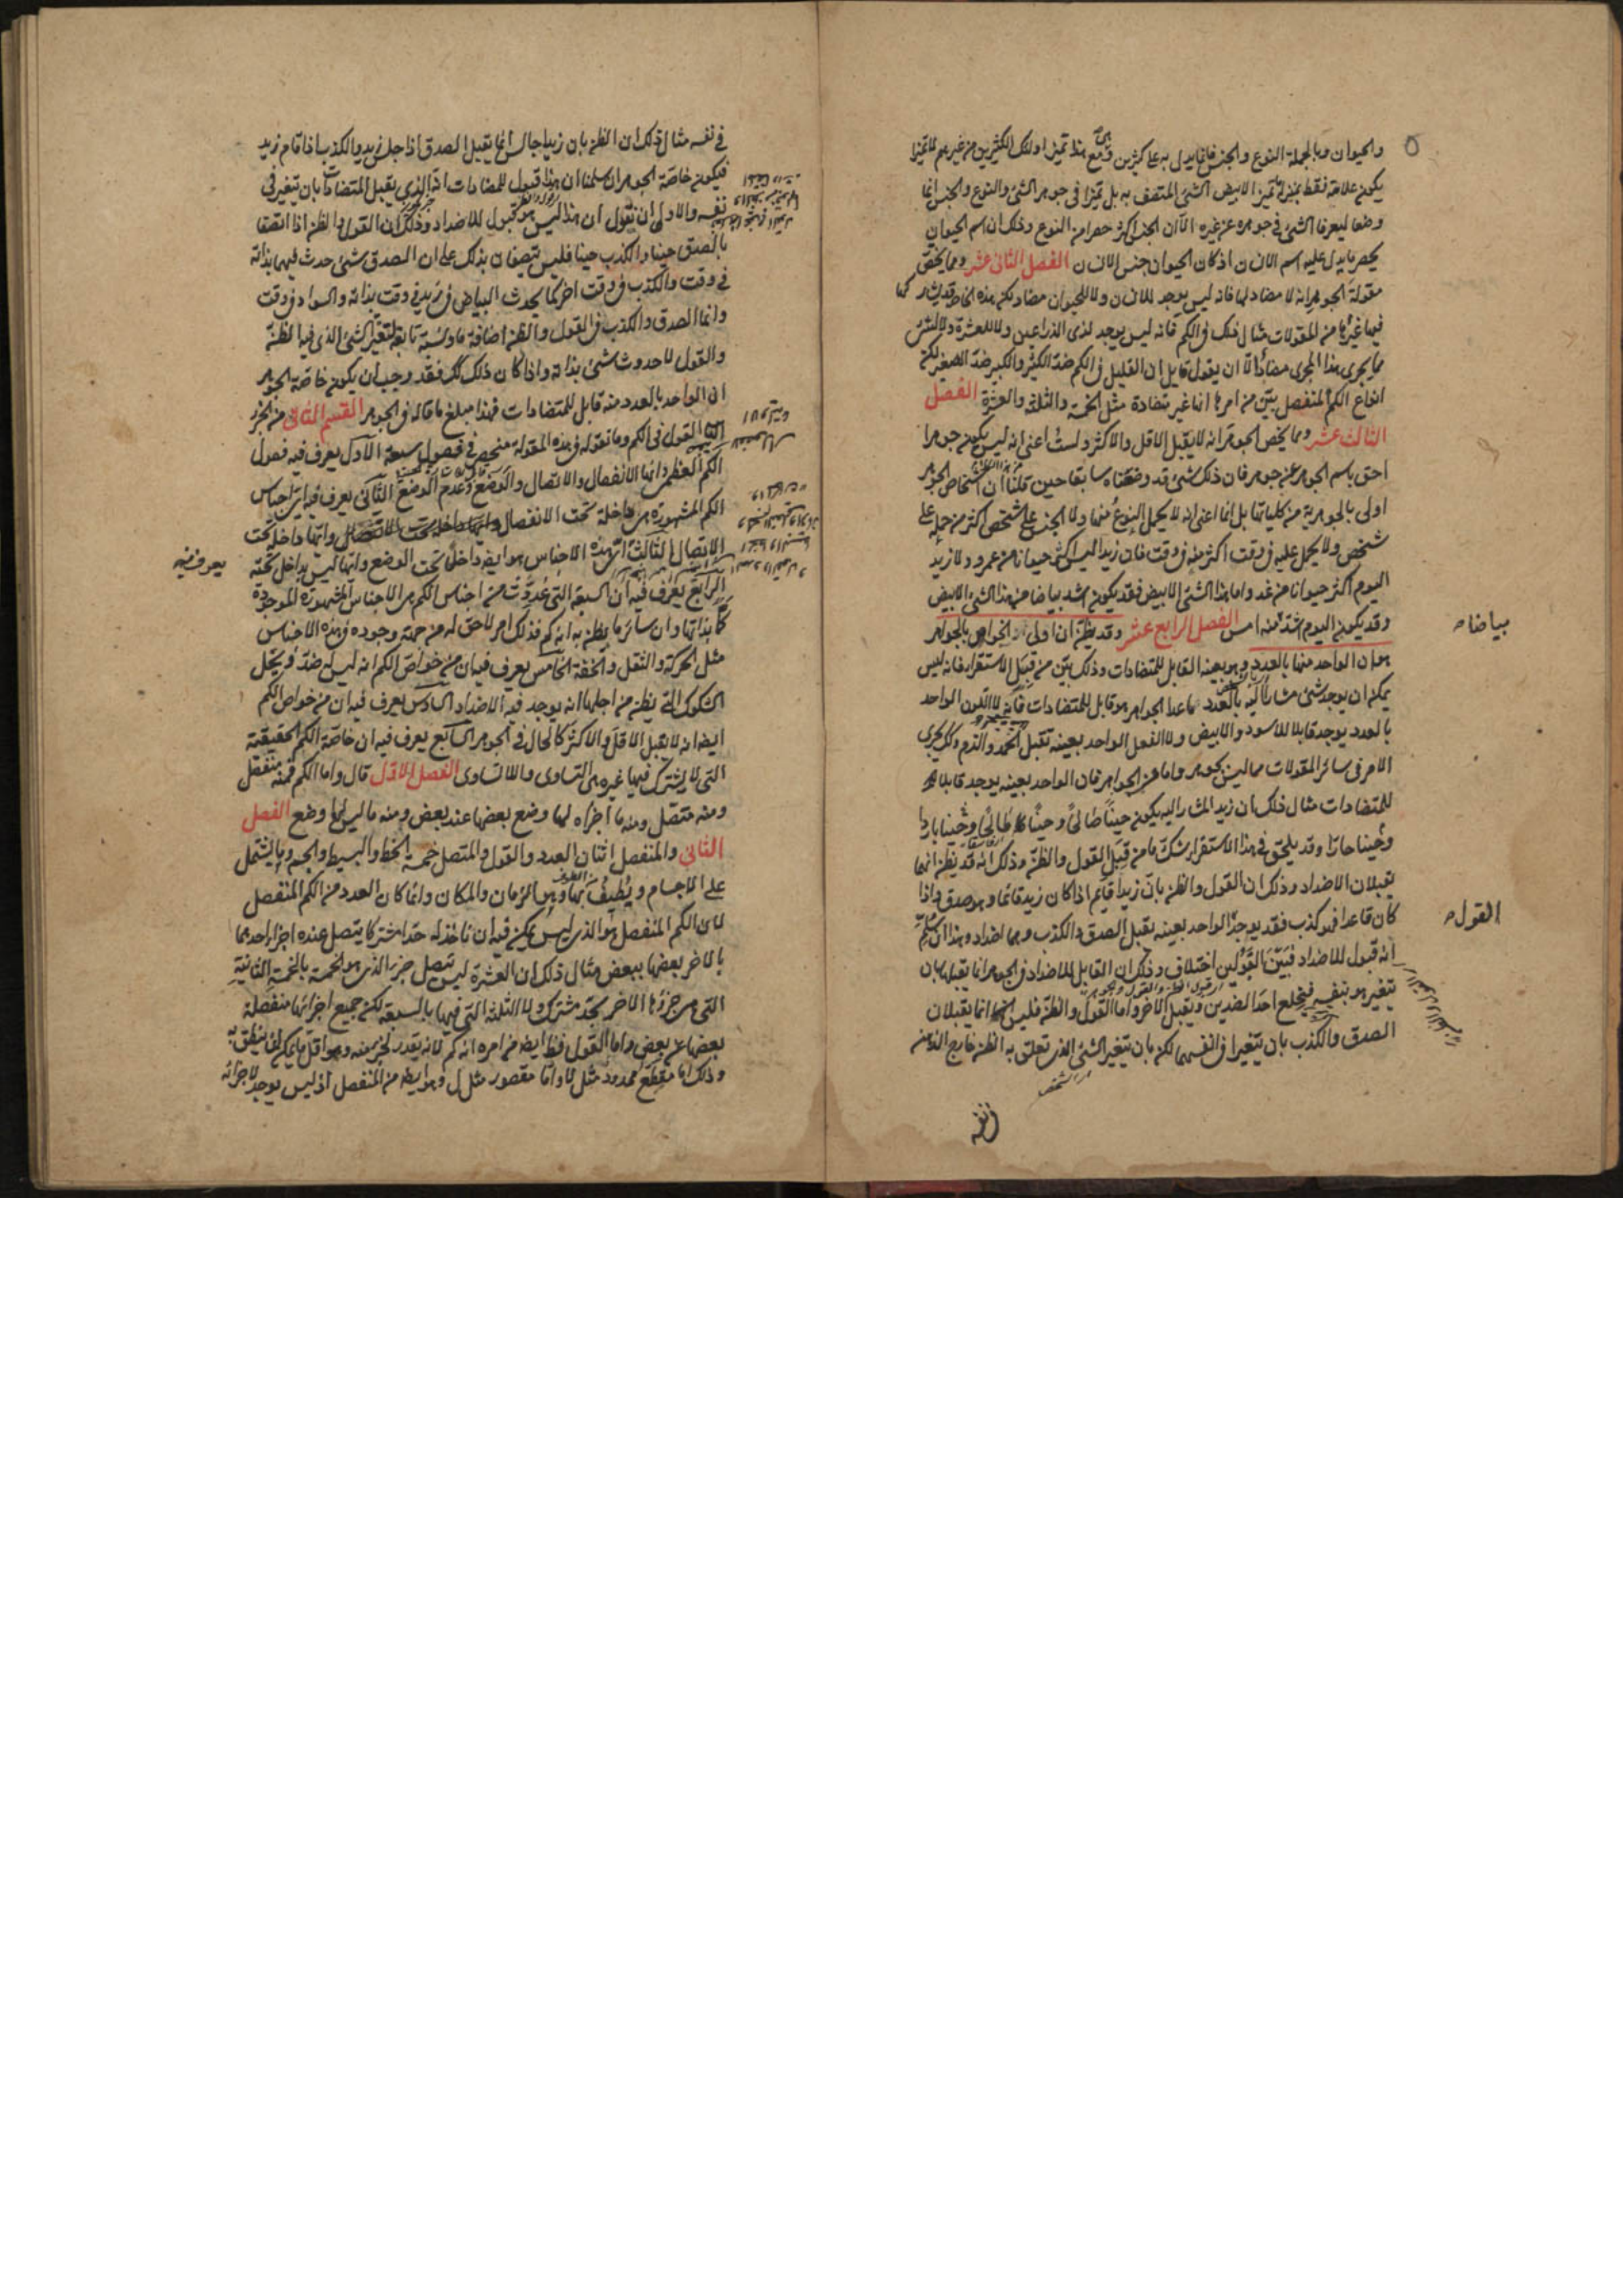 والحيوان وبالجملة النوع والجنس فانما يدل به على كثيرين ومع هذا تميز اولئك الكثيرين من غيرهم لا تميزا
يكون علامة فقط بمنزلة تميز الابيض الشئ المتصف به بل تميزا فى جوهر الشئ والنوع والجنس انما
وضعا ليعرفا الشئ فى جوهره عن غيره الا ان الجنس اكثر حصرا من النوع وذلك ان اسم الحيوان
يحصر ما يدل عليه اسم الانسان اذ كان الحيوان جنس الانسان الفصل الثانى عشر ومما يخص
مقولة الجوهر انه لا مضاد لها فانه ليس يوجد للانسان ولا للحيوان مضاد لكن هذه الخاصة قد يشار كها
فيها غيرها من المقولات مثال ذلك فى الكم فانه ليس يوجد لذى الذراعين ولا للعشرة ولا لشئ
مما يجرى هذا المجرى مضاد الا ان يقول قايل ان القليل فى الكم ضد الكثير والكبير ضد الصغير لكن
انواع الكم المنفصل بين من امرها انها غير متضادة مثل الخمسة والثلثة والعشرة الفصل
الثالث عشر ومما يخص الجوهر انه لا يقبل الاقل والاكثر ولست اعنى انه ليس يكون جوهرا
احق باسم الجوهر عن جوهر فان ذلك شئ قد وضعناه سابقا حين قلنا ان اشخاص الجوهر
اولى بالجوهرية من كلياتها بل انما اعنى انه لا يحمل النوع منها ولا الجنس على شخص اكثر من حمله على
شخص ولا يحمل عليه فى وقت اكثر منه فى وقت فان زيدا ليس اكثر حيوانا من عمرو ولا زيد
اليوم اكثر حيوانا من غد واما هذا الشئ الابيض فقد يكون اشد بياضا من هذا الشئ الابيض
وقد يكون اليوم اشد منه امس الفصل الرابع عشر وقد يظن ان اولى الخواص بالجواهر
هو ان الواحد منها بالعدد وهو بعينه القابل للمتضادات وذلك بين من قبل الاستقراء فانه ليس
يمكن ان يوجد شئ مشار اليه بالعدد مما عدا الجواهر هو قابل للمتضادات فانه لا اللون الواحد
بالعدد يوجد قابلا للاسود والابيض ولا الفعل الواحد بعينه تقبل الحمد والذم وكذلك يجرى
الامر فى سائر المقولات مما ليس بجوهر واما فى الجواهر فان الواحد بعينه يوجد قابلا
للمتضادات مثال ذلك ان زيد المشار اليه يكون حينا صالحا وحينا طالحا وحينا باردا
وحينا حارا وقد يلحق فى هذا الاستقراء شك ما من قبل القول والظن وذلك انه قد يظن انهما
يقبلان الاضداد وذلك ان القول والظن بان زيدا قايم اذا كان زيد قائما هو صدق واذا
كان قاعدا فهو كذب فقد يوجد الواحد بعينه يقبل الصدق والكذب وهما اضداد وهذا ان سلم
انه قبول للاضداد فبين القبولين اختلاف وذلك ان القابل للاضداد فى الجوهر انما يقبلها بان
يتغير هو بنفسه فيخلع احد الضدين ويقبل الاخر واما القول والظن فليس انما يقبلان
الصدق والكذب بان يتغيرا فى انفسهما لكن بان يتغير الشئ الذى تعلق به الظن خارج الذهن
بياضا
القول
فى نفسه
فى نفسه مثال ذلك ان الظن بان زيدا جالس انما يقبل الصدق اذا جلس زيد والكذب اذا قام زيد
فيكون خاصة الجوهر ان سلمنا ان هذا قبول للمضادات انه الذى يقبل المتضادات بان يتغير فى
نفسه والاولى ان نقول ان هذا ليس هو قبول للاضداد وذلك ان القول والظن اذا اتصفا
بالصدق حينا والكذب حينا فليس يتصفان بذلك على ان الصدق شئ حدث فيهما بذاته
فى وقت والكذب فى وقت اخر كما يحدث البياض فى زيد فى وقت بذاته والسواد فى وقت
وانما الصدق والكذب فى القول والظن اضافة ما ونسبة تابعة لتغير الشئ الذى فيه الظن
والقول لا حدوث شئ بذاته واذا كان ذلك كك فقد وجب ان يكون خاصة الجوهر
ان الواحد بالعدد منه قابل للمتضادات فهذا مبلغ ما قاله فى الجوهر القسم الثانى من الجزء
القول فى الكم وما نقوله فى هذه المقولة منحصر فى فصول سبعة الاول يعرف فيه فصول
الكم العظمى وانها الانفصال والاتصال والوضع وعدم الوضع الثانى يعرف فيه اى اجناس
الكم المشهورة هى داخلة تحت الانفصال وايها داخل تحت
الاتصال الثالث اى هذه الاجناس هو ايضا داخل تحت الوضع وايها ليس يداخل تحته
الرابع يعرف فيه ان السبعة التى عددت من اجناس الكم هى الاجناس المشهورة الموجودة
كما بذاتها وان سائر ما يظن به انه كم فذلك امر لاحق له من جهة وجوده فى هذه الاجناس
مثل الحركة والثقل والخفة الخامس يعرف فيه ان من خواص الكم انه ليس له ضد ويحل
الشكوك التى يظن من اجلها انه يوجد فيه الاضداد السادس يعرف فيه ان من خواص الكم
ايضا انه لا يقبل الاقل والاكثر كالحال فى الجوهر السابع يعرف فيه ان خاصة الكم الحقيقية
التى لا يشترك فيها غيره هى التساوى واللاتساوى الفصل الاول قال واما الكم فمنه منفصل
ومنه متصل ومنه ما اجزاه لها وضع بعضها عند بعض ومنه ما ليس لها وضع الفصل
الثانى والمنفصل اثنان العدد والقول والمتصل خمسة الخط والبسيط والجسم وما يشتمل
على الاجسام ويطيف بها وهو الزمان والمكان وانما كان العدد من الكم المنفصل
لان الكم المنفصل هو الذى ليس يمكن فيه ان ناخذ له حدا مشتركا يتصل عنده اجزاء احدهما
بالاخر بعضها ببعض مثال ذلك ان العشرة ليس يتصل جزءه الذى هو الخمسة بالخمسة الثانية
التى هى جزؤها الاخر بحد مشترك ولا الثلثة التى فيها بالسبعة لكن جميع اجزائها منفصلة
بعضها عن بعض واما القول فظ ايضا من امره انه كم لانه يقدر بجزء منه وهو اقل ما يمكن ان ينطق به
وذلك اما مقطع ممدود مثل لا واما مقصور مثل ل وهو ايضا من المنفصل اذ ليس يوجد لاجزائه
يعرف فيه